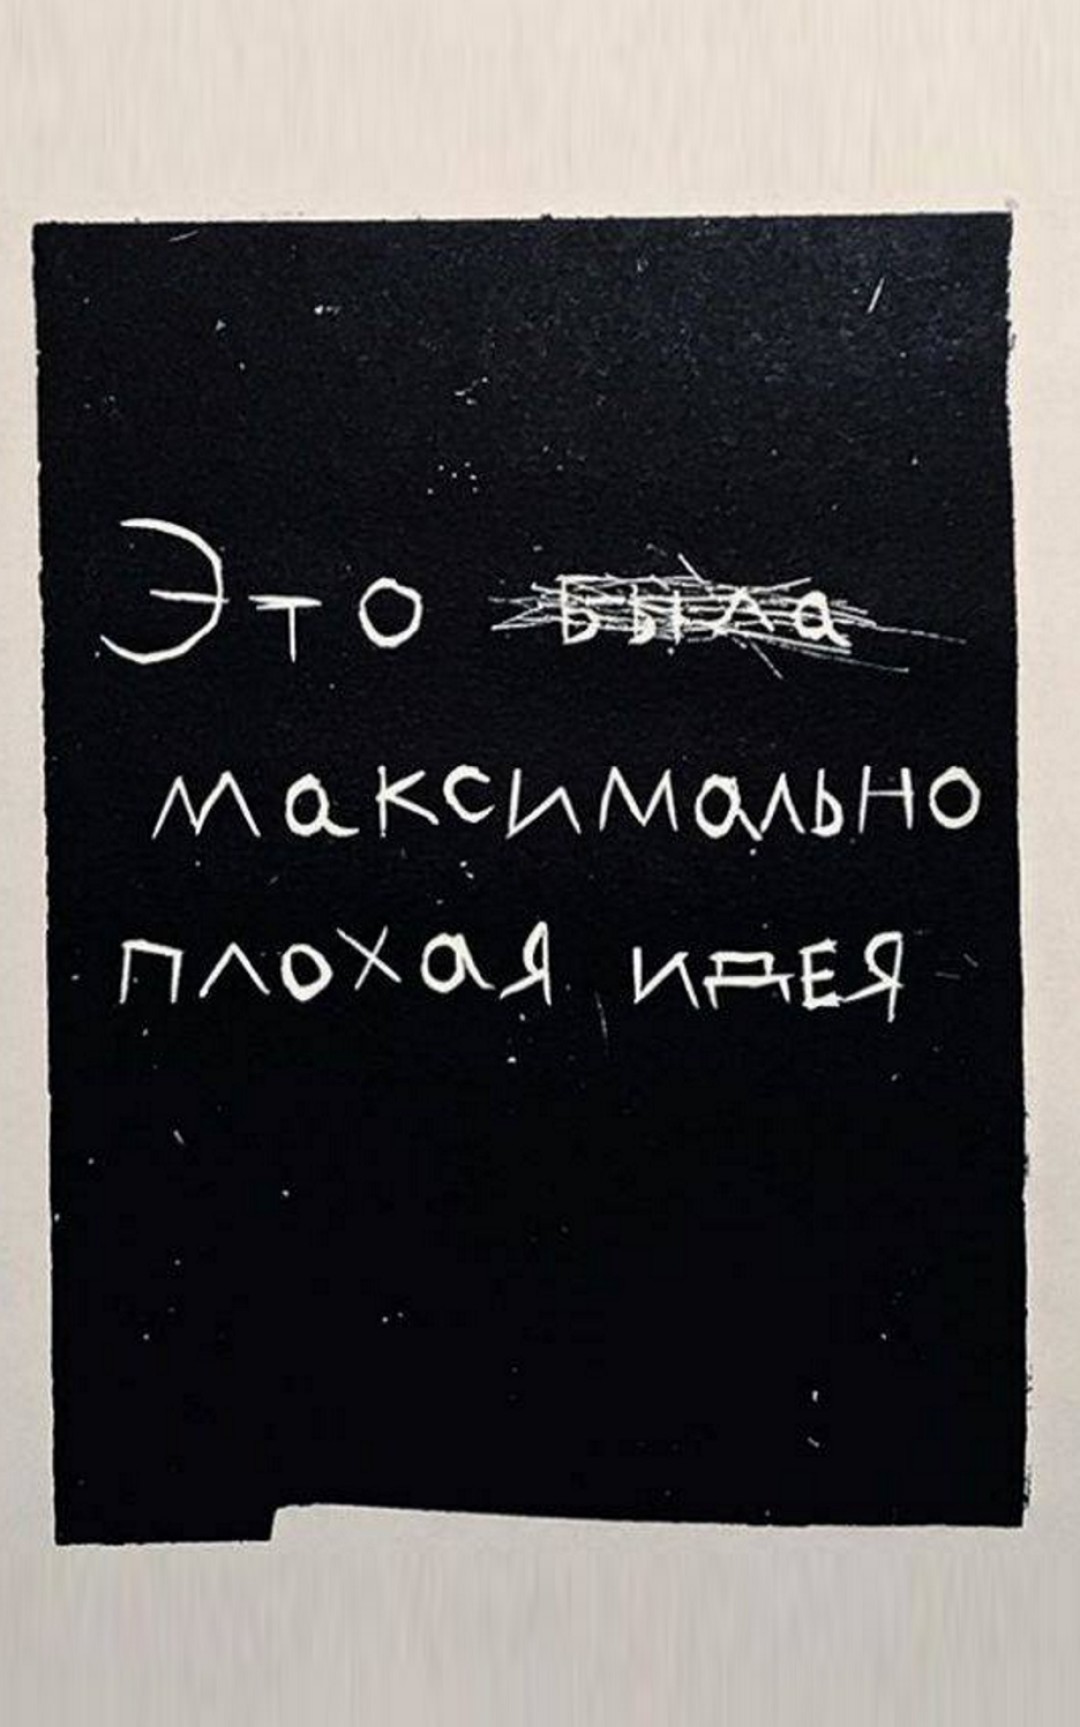 Это была
максимально
плохая идея